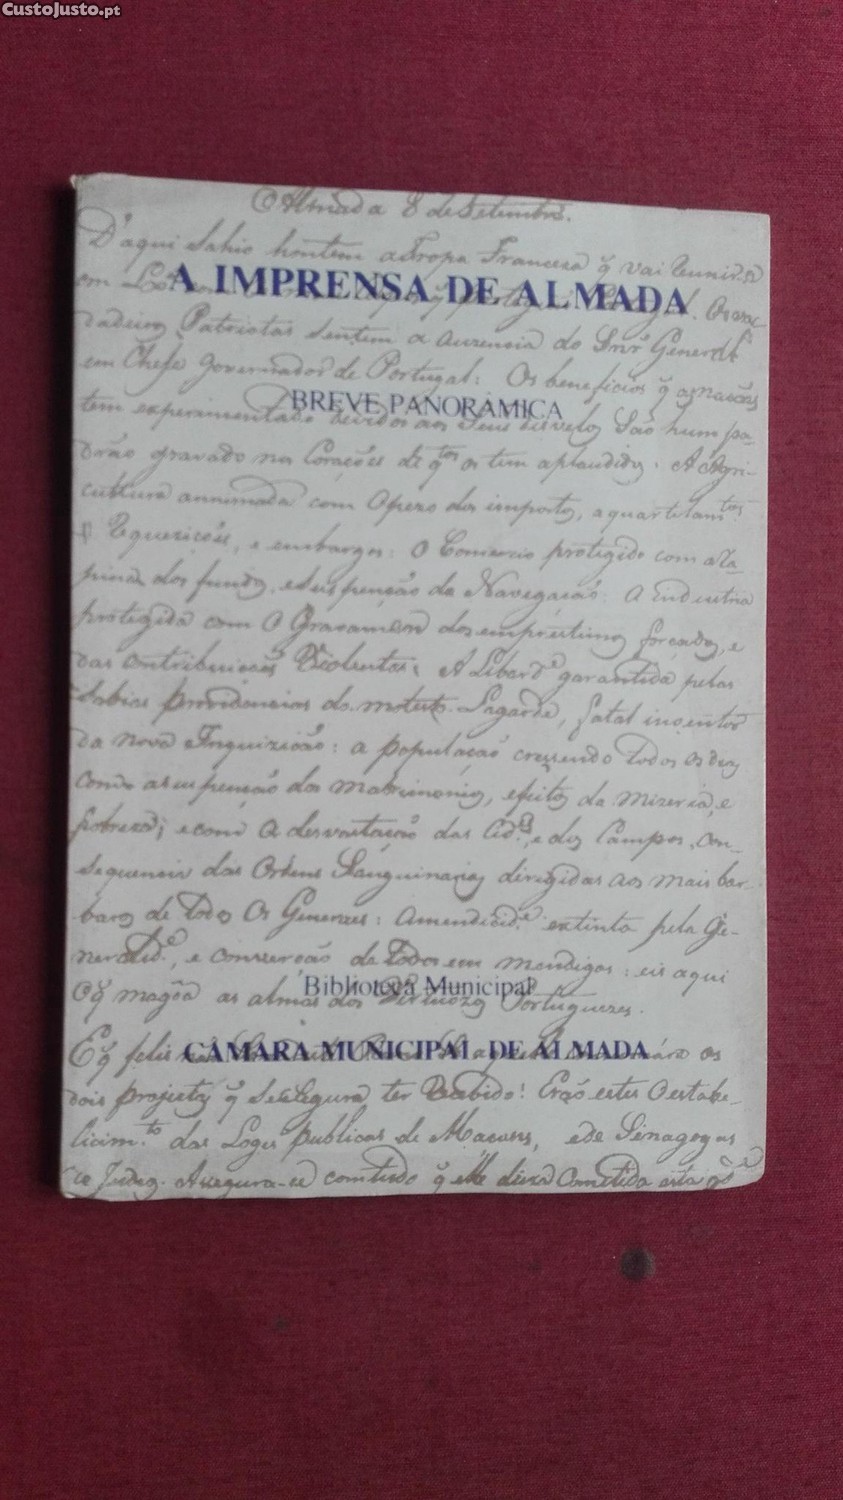 CustoJusto.pt
Almada 8 de Setembro.
D'aqui Sahio hontem a Tropa Franceza q̃ vai reunir-se
em
A IMPRENSA DE ALMADA
dadeiros Patriotas sentem a auzencia do Snr. General
em Chefe Governador de Portugal: Os beneficios q̃ as nacões
BREVE PANORÂMICA
tem experimentado devidos aos Seus disvelos São hum pa-
drão gravado nos Corações de q.tos os tem aplaudido. A Agri-
cultura annimada com o pezo dos impostos, aquartelam.tos
Requizicões, e embargos: O Comercio protegido com a ra-
pina dos fundos, e suspenção da Navegacaõ: A industria
protegida com o Gravamen dos emprestimos forcados, e
das contribuicoẽs Violentas: A Liberd.e garantida pelas
sabias providencias do Lagarde, fatal inventor
da nova Inquizicão: a populaçaõ crescendo todos os dias
com a suspenção dos matrimonios, efeitos da mizeria, e
pobreza; e com a devastação das Cid.es, e dos Campos, con-
sequencia das Ordens Sanguinarias dirigidas aos mais bar-
baros de todos os Generaes: a mendicid.e extinta pela Ge-
neralid.e, e conversão de todos em mendigos: eis aqui
Biblioteca Municipal
o q̃ magõa as almas dos Virtuozos Portuguezes.
CÂMARA MUNICIPAL DE ALMADA
E q̃ feliz os
dois projectos q̃ se segura ter Recebido! Erão estes o estabe-
licim.to das Loges publicas de Macons, e de Sinagogas
de Judeos. Assegura-se comtudo q̃ elle deixa